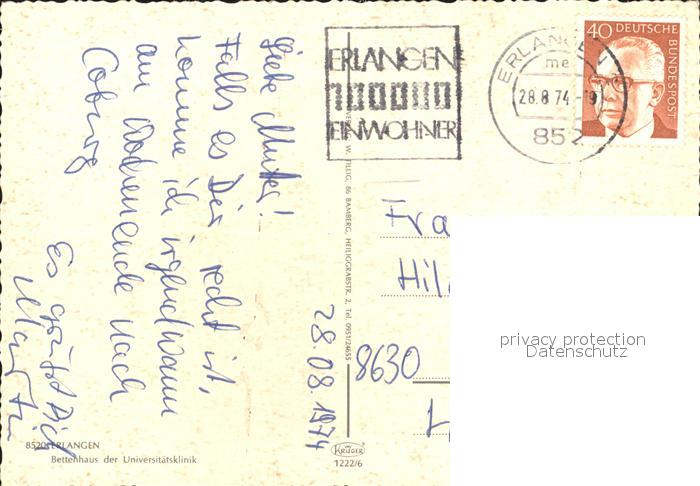 ERLANGEN
100000
EINWOHNER
ERLANGEN
me
28.8.74-19
852
40 DEUTSCHE
BUNDESPOST
Liebe Mutter!
Falls es Dir recht ist,
komme ich irgendwann
am Wochenende nach
Coburg
Es grüßt Dich
Martin
28.08.1974
W. TILLIG, 86 BAMBERG, HEILIGGRABSTR. 2, Tel. 0951/24655
Fra
Hil
8630
privacy protection
Datenschutz
8520 ERLANGEN
Bettenhaus der Universitätsklinik
KRÜGER
1222/6